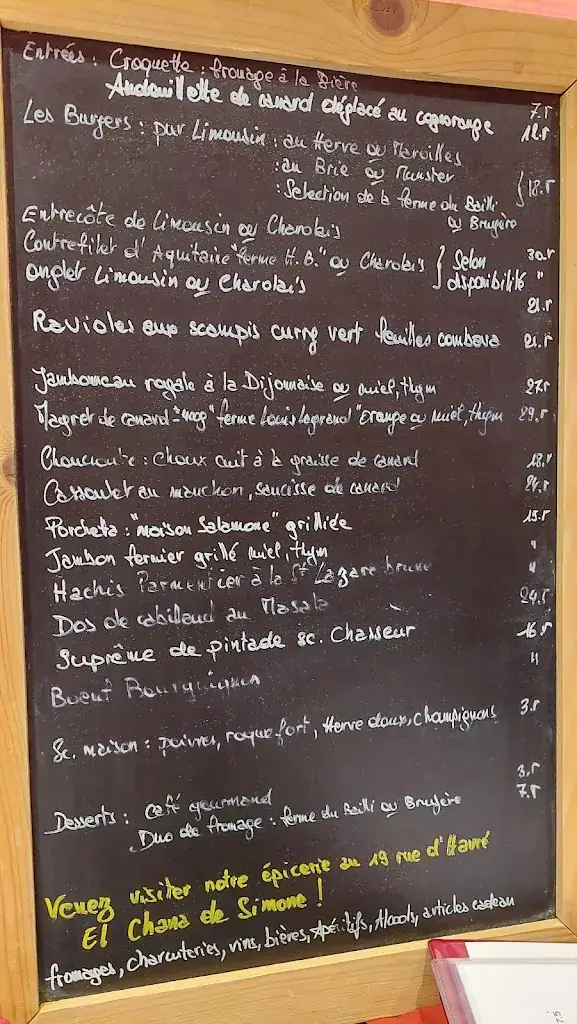 Entrées : Croquette : fromage à la Bière 7.5
Andouillette de canard déglacé au cognorange 12.5
Les Burgers : pur Limousin : au Herve ou Maroilles
: au Brie ou Munster
: Selection de la ferme du Bailli 18.5
ou Bruyère
Entrecôte de Limousin ou Charolais
Contrefilet d'Aquitaine "ferme H.B." ou Charolais Selon
onglet Limousin ou Charolais disponibilité "
Ravioles aux scampis curry vert feuilles combava 21.5
Jambonneau rogale à la Dijonnaise ou miel, thym 27.5
Magret de canard ± 400g "ferme Louis Legrand" Orange ou miel, thym 29.5
Choucroute : Choux cuit à la graisse de canard 18.5
Cassoulet au manchon, saucisse de canard 24.5
Porcheta : "maison Salamone" grillée 15.5
Jambon fermier grillé miel, thym "
Hachis Parmentier à la St Lazare brune "
Dos de cabillaud au Masala 24.5
Suprême de pintade sc. Chasseur 16.5
Bœuf Bourguignon "
Sc. maison : poivres, roquefort, Herve doux, champignons 3.5
Desserts : café gourmand
Duo de fromage : ferme du Bailli ou Bruyère 7.5
Venez visiter notre épicerie au 19 rue d'Havré
El Chana de Simone !
fromages, charcuteries, vins, bières, Apéritifs, Alcools, articles cadeau